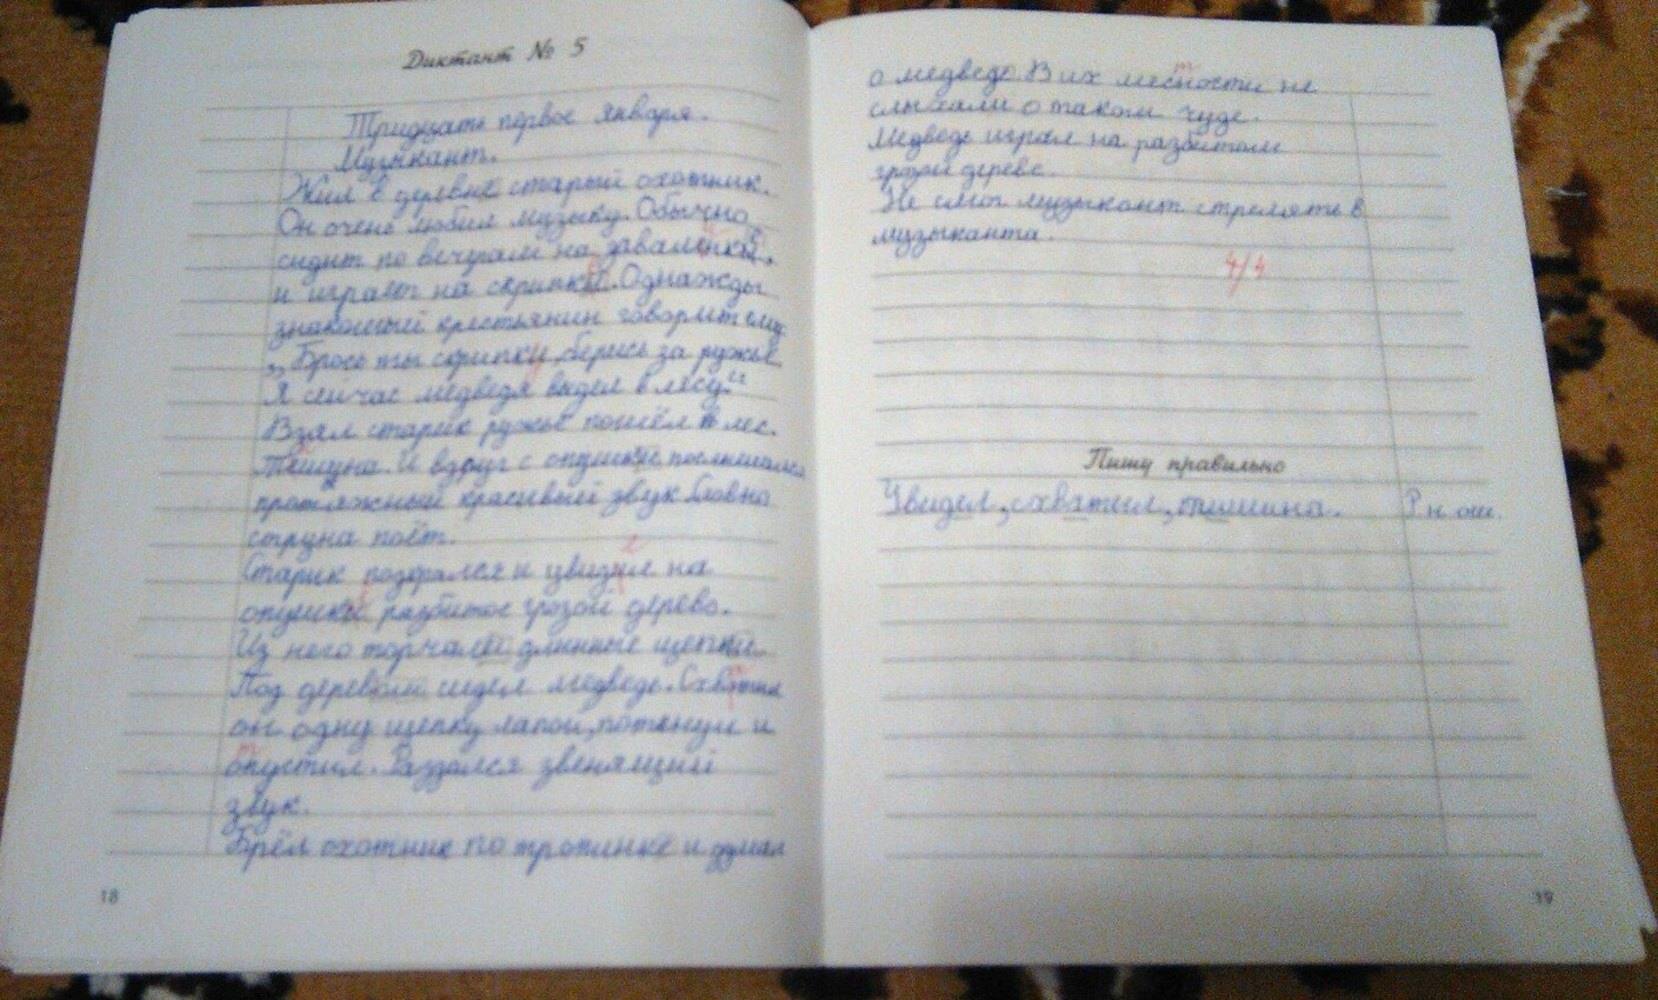 Диктант № 5
Тридцать первое января.
Музыкант.
Жил в деревне старый охотник.
Он очень любил музыку. Обычно
сидит по вечерам на заваленке,
и играет на скрипке. Однажды
знакомый крестьянин говорит ему:
„Брось ты скрипку, берись за ружьё.
Я сейчас медведя видел в лесу."
Взял старик ружьё пошёл в лес.
Тишина. И вдруг с опушки послышался
протяжный красивый звук. Словно
струна поёт.
Старик подкрался и увидел на
опушке разбитое грозой дерево.
Из него торчали длинные щепки.
Под деревом сидел медведь. Схватил
он одну щепку лапой, потянул и
опустил. Раздался звенящий
звук.
Брёл охотник по тропинке и думал
18
о медведе. В их месности не
т
слыхали о таком чуде.
Медведь играл на разбитом
грозой дереве.
Не смог музыкант стрелять в
музыканта.
4/4
Пишу правильно
Увидел, схватил, тишина.
Р. н. ош.
19